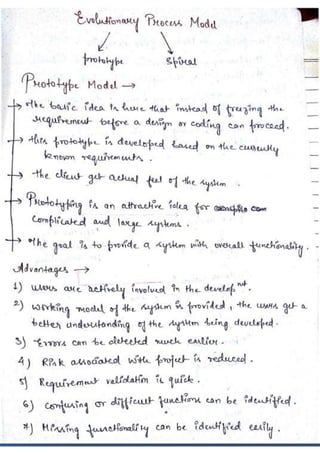 Evolutionary Process Model
prototype Spiral
Prototype Model →
→ • the basic idea is here that instead of freezing the
requirement before a design or coding can proceed.
→ • this prototype is developed based on the currently
known requirements.
→ • the client get actual feel of the system
→ • Prototyping is an attractive idea for
complicated and large systems.
→ • The goal is to provide a system with overall functionality.
Advantages →
1) users are actively involved in the develop.nt.
2) working model of the system is provided, the users get a
better understanding of the system being developed.
3) Errors can be detected much earlier.
4) Risk associated with project is reduced.
5) Requirement validation is quick.
6) confusing or difficult functions can be identified.
7) Missing functionality can be identified easily.